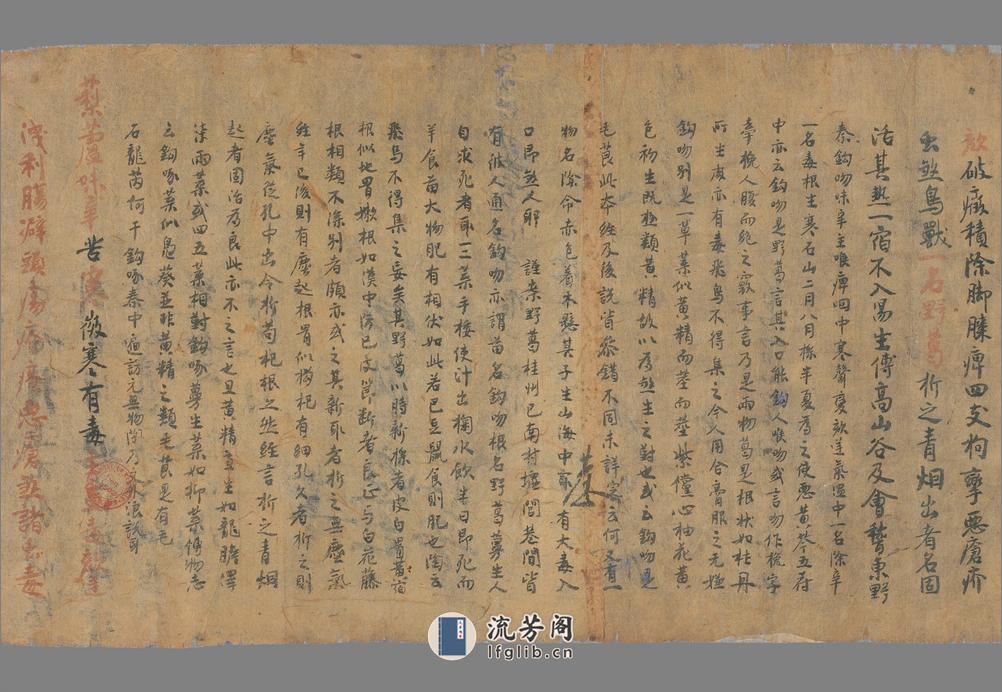 欬破癥積除脚膝痺四支拘攣惡瘡疥
虫煞鳥獸一名野葛折之青烟出者名固
活其熱一宿不入湯生傅高山谷及會稽東野
秦鈎吻味辛主喉痺咽中寒聲變欬逆氣溫中一名除辛
一名毒根生寒石山二月八月採半夏為之使惡黃芩五苻
中亦云鈎吻是野葛言其入口能鈎人喉吻或言吻作挽字
牽挽人腹而絕之覈事言乃是兩物葛是根狀如牡丹
所生處亦有毒飛鳥不得集之今人用合膏服之无嫌
鈎吻別是一草葉似黃精而莖而莖紫儅心抽花黃
色初生既極類黃精故以為煞生之對也或云鈎吻是
毛茛此本經及後說皆參錯不同未詳定云何又有一
物名除命亦色著木懸其子生山海中亦有大毒入
口即煞人 謹案野葛桂州已南村墟閭巷間皆
有彼人通名鈎吻亦謂苗名鈎吻根名野葛蔓生人
自求死者取一二葉手挼使汁出掬水飲半日即死而
羊食苗大物肥有相伏如此若巴豆鼠食則肥也陶云
飛鳥不得集之妄矣其野葛以時新採者皮白骨黃宿
根似地骨嫩根如漢中防已皮節斷者良正与白花藤
根相類不深別者頗亦或之其新取者折之無塵氣
經年已後則有塵起根骨似枸杞有細孔久者折之則
塵氣從孔中出今折苟杞根之然經言折之青烟
起者固治為良此亦不之言也且黃精直生如龍膽澤
柒兩葉或四五葉相對鈎吻蔓生葉如柳葉博物志
云鈎吻葉似鳧葵並非黃精之類毛茛是有毛
石龍芮何干鈎吻秦中遍訪元無物陶乃
藜蘆味辛苦寒微寒有毒
洩利腸澼頭瘍疥瘙惡瘡欬諸虫毒
流芳阁
lfglib.cn